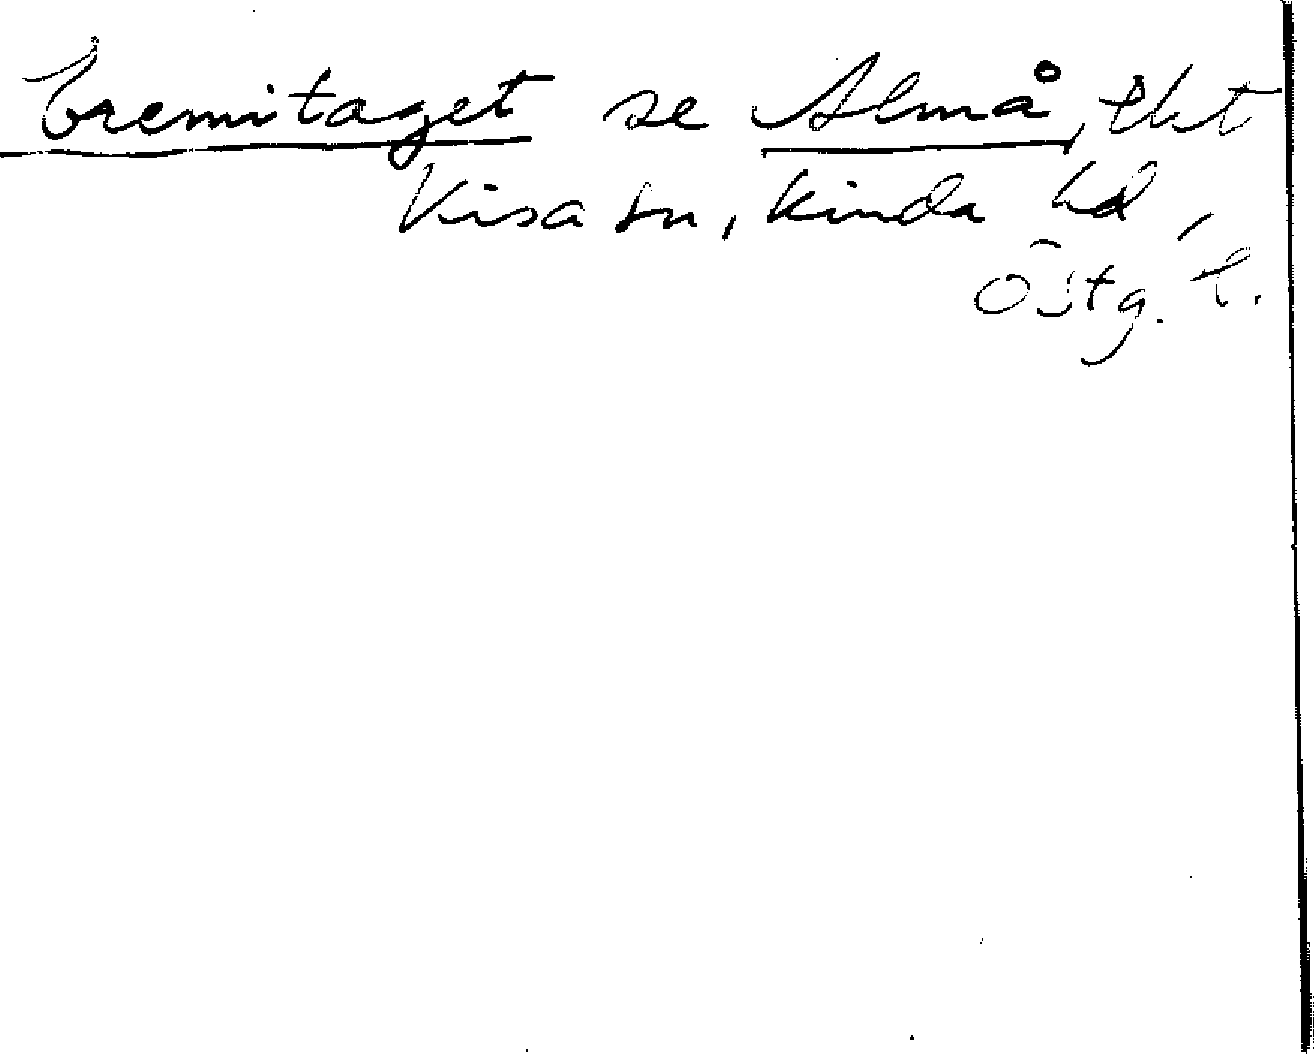 Eremitaget se Almå, Ekt
Kisa sn, Kinda hd,
Östg. l.